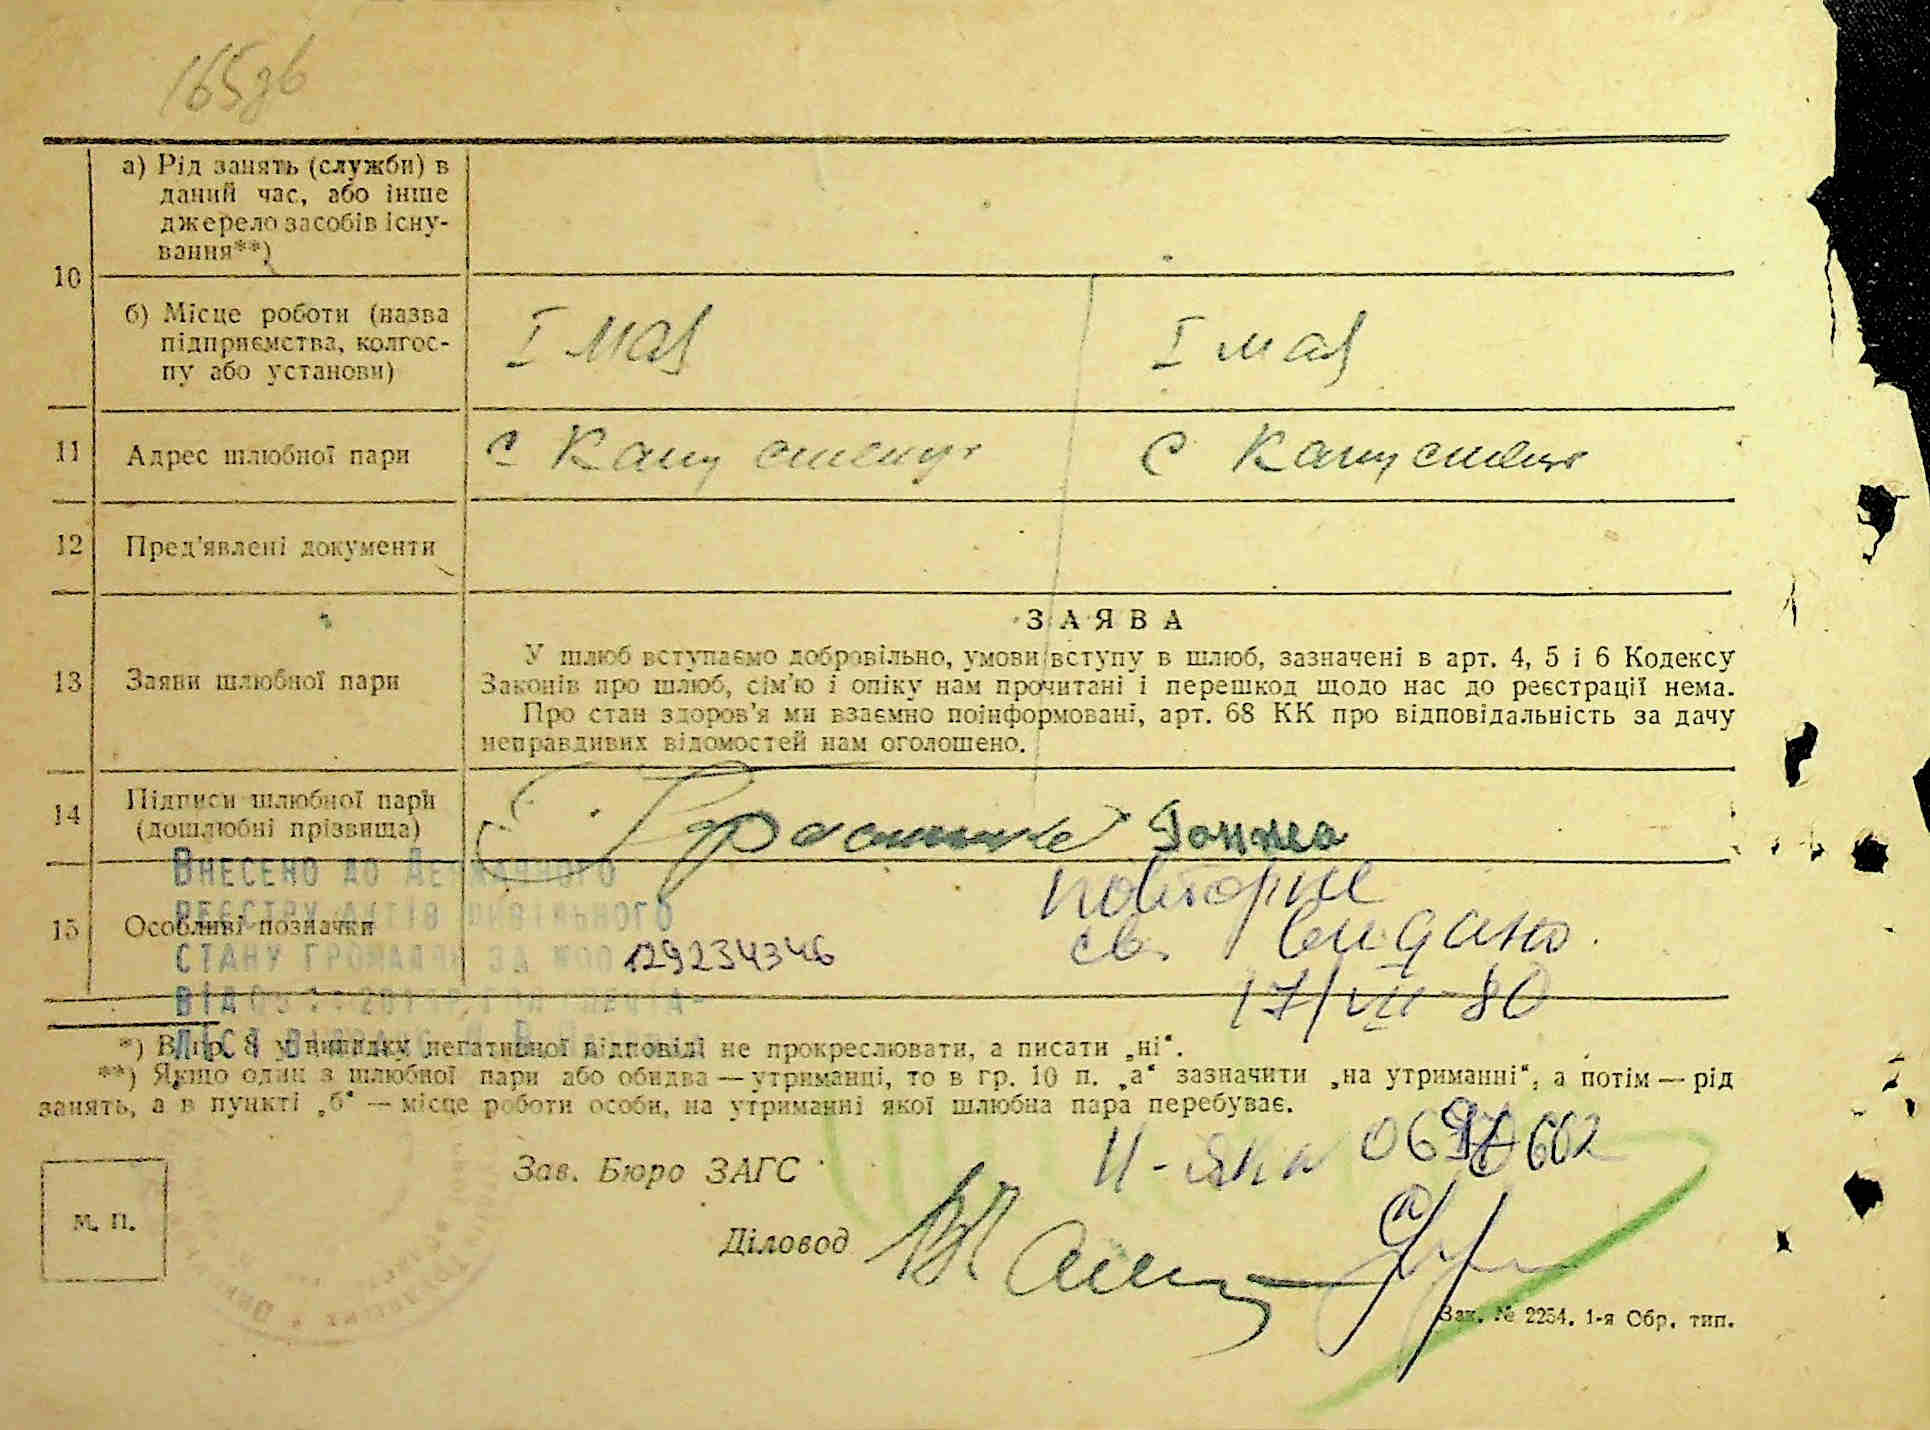 165зв
10
а) Рід занять (служби) в
даний час, або інше
джерело засобів існу-
вання**)
б) Місце роботи (назва
підприємства, колгос-
пу або установи)
І мая
І мая
11
Адрес шлюбної пари
с Капустенцы
с Капустенцы
12
Пред'явлені документи
13
Заяви шлюбної пари
ЗАЯВА
У шлюб вступаємо добровільно, умови вступу в шлюб, зазначені в арт. 4, 5 і 6 Кодексу
Законів про шлюб, сім'ю і опіку нам прочитані і перешкод щодо нас до реєстрації нема.
Про стан здоров'я ми взаємно поінформовані, арт. 68 КК про відповідальність за дачу
неправдивих відомостей нам оголошено.
14
Підписи шлюбної пари
(дошлюбні прізвища)
15
Особливі позначки
Внесено до Державного
реєстру актів цивільного
стану громадян за №00
129234346
повторне
св. видано
17/VIII-80
*) В гр. 8 у випадку негативної відповіді не прокреслювати, а писати „ні“.
**) Якщо один з шлюбної пари або обидва — утриманці, то в гр. 10 п. „а“ зазначити „на утриманні“, а потім — рід
занять, а в пункті „б“ — місце роботи особи, на утриманні якої шлюбна пара перебуває.
Зав. Бюро ЗАГС
Діловод
М. П.
Зак. № 2254. 1-я Обр. тип.